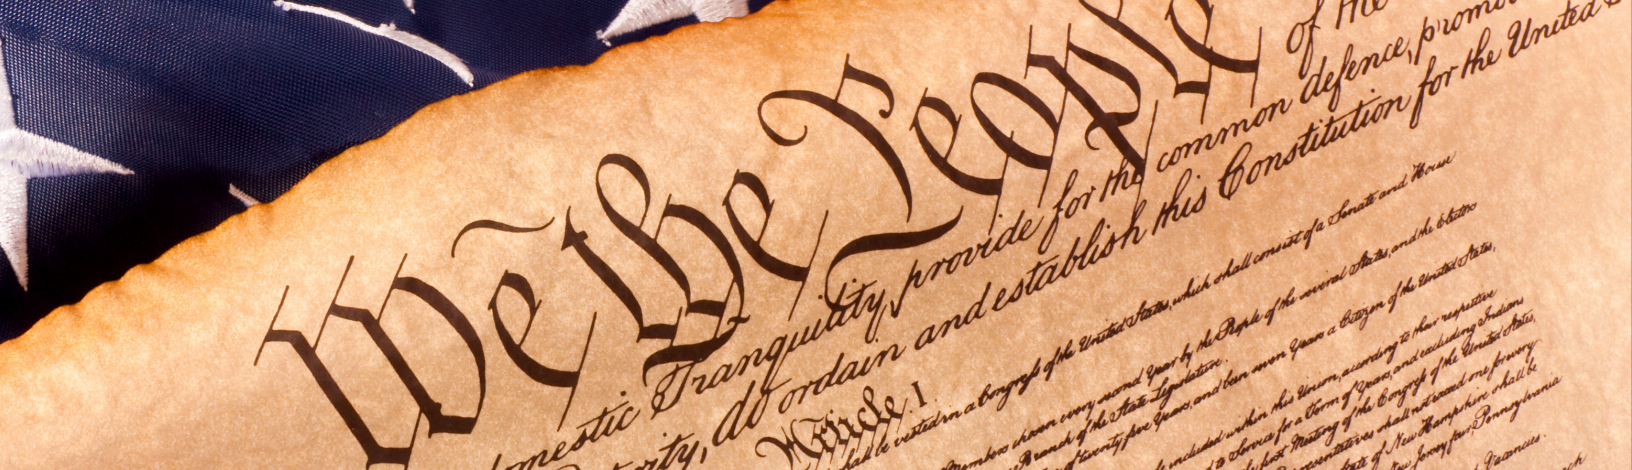 We the People
of the
domestic Tranquility, provide for the common defence, promo
erity, do ordain and establish this Constitution for the United S
Article I
hall be vested in a Congress of the United States, which shall consist of a Senate and House
Members chosen every second Year by the People of the several States, and the Electors
Branch of the State Legislature.
of twenty five Years, and been seven Years a Citizen of the United States,
included within this Union, according to their respective
to Service for a Term of Years, and excluding Indians
first Meeting of the Congress of the United States,
resentatives shall not exceed one for every
State of New Hampshire shall be
Jersey four, Pennsylvania
Vacancies.